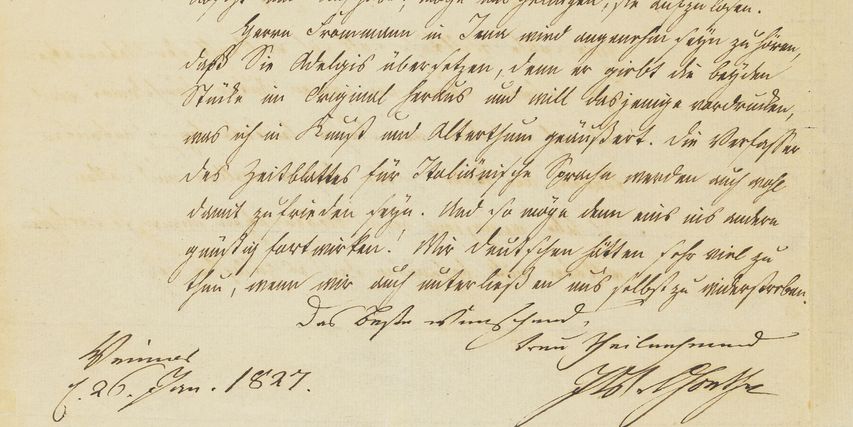 möge gelingen, sie aufzulösen.
Herrn Frommann in Jena wird angenehm seyn zu hören,
daß Sie Adelgis übersetzen, denn er giebt die beyden
Stücke im Original heraus und will dasjenige vordrucken,
was ich in Kunst und Alterthum geäußert. Die Verfasser
des Zeitblattes für Italiänische Sprache werden auch wohl
damit zufrieden seyn. Und so möge denn eins ins andere
günstig fortwirken! Wir Deutschen hätten sehr viel zu
thun, wenn wir auch unterließen uns selbst zu widerstreben.
Das Beste wünschend,
treu theilnehmend
Weimar
d. 26. Jan. 1827.
JWvGoethe